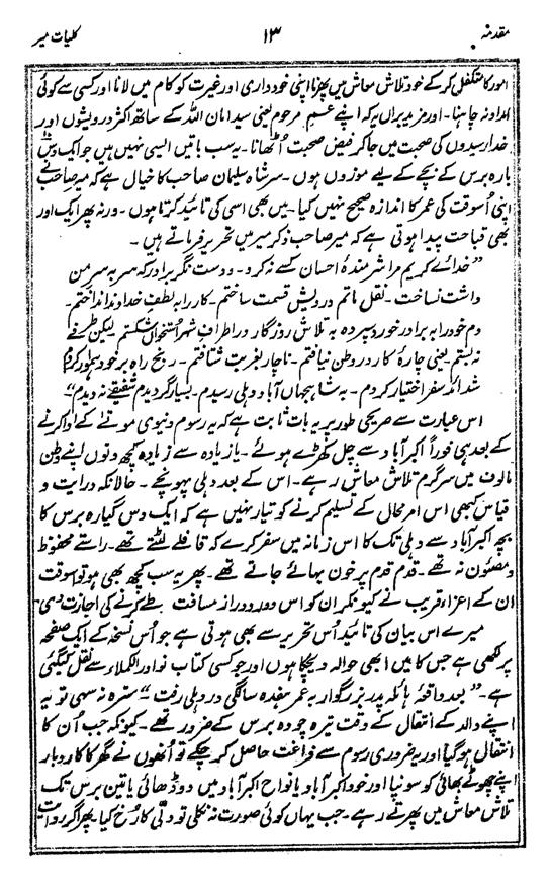 مقدمہ ۱۳ کلیات میر
امور کا متکفل کر کے خود تلاش معاش میں پھرنا اپنی خود داری اور غیرت کو کام میں لانا اور کسی سے کوئی
امداد نہ چاہنا۔ اور مزید براں یہ کہ اپنے عم مرحوم یعنی سید امان اللہ کے ساتھ اکثر درویشوں اور
خدا رسیدوں کی صحبت میں جا کر فیض صحبت اُٹھانا۔ یہ سب باتیں ایسی نہیں ہیں جو ایک دس
بارہ برس کے بچے کے لیے موزوں ہوں۔ سر شاہ سلیمان صاحب کا خیال ہے کہ میر صاحب نے
اپنی اُسوقت کی عمر کا اندازہ صحیح نہیں کیا۔ میں بھی اسی کی تائید کرتا ہوں۔ ورنہ پھر ایک اور
بھی قباحت پیدا ہوتی ہے کہ میر صاحب ذکر میر میں تحریر فرماتے ہیں۔
”خدائے کریم مرا شرمندۂ احسان کسے نہ کرد۔ و دست نگر برادر کہ سر بہ سر من
داشت نساخت۔ نقل ماتم درویش قسمت ساختم۔ کار را بہ لطف خداوند انداختم۔
دم خود را بہ برادر خورد سپردہ بہ تلاش روزگار در اطراف شہر استخوان شکستم لیکن طرفے
نہ بستم یعنی چارۂ کار در وطن نیافتم۔ ناچار بغربت شتافتم۔ رنج راہ بر خود ہموار کردم
شدائد سفر اختیار کردم۔ بہ شاہجہاں آباد دہلی رسیدم۔ بسیار گردیدم شفیقے نہ دیدم“
اس عبارت سے صریحی طور پر یہ بات ثابت ہے کہ یہ رسوم دنیوی موتے کے ادا کرنے
کے بعد ہی فوراً اکبر آباد سے چل کھڑے ہوئے۔ یا زیادہ سے زیادہ کچھ دنوں اپنے وطن
مالوف میں سرگرم تلاش معاش رہے۔ اس کے بعد دہلی پہونچے۔ حالانکہ درایت و
قیاس کبھی اس امر محال کے تسلیم کرنے کو تیار نہیں ہے کہ ایک دس گیارہ برس کا
بچہ اکبر آباد سے دہلی تک کا اس زمانہ میں سفر کرے کہ قافلے لٹتے تھے۔ راستے محفوظ
و مصئون نہ تھے۔ قدم قدم پر خون بہائے جاتے تھے۔ پھر یہ سب کچھ بھی ہو تو اسوقت
ان کے اعزاء قریب نے کیونکر ان کو اس دور دراز مسافت طے کرنے کی اجازت دی۔
میرے اس بیان کی تائید اُس تحریر سے بھی ہوتی ہے جو اُس نسخہ کے ایک صفحہ
پر لکھی ہے جس کا میں ابھی حوالہ دیچکا ہوں اور جو کسی کتاب نوادر الکملاء سے نقل کیگئی
ہے۔ ”بعد واقعۂ ہائلہ پدر بزرگوار بہ عمر ہفدہ سالگی در دہلی رفت“ سترہ نہ سہی تو یہ
اپنے والد کے انتقال کے وقت تیرہ چودہ برس کے ضرور تھے۔ کیونکہ جب اُن کا
انتقال ہو گیا اور یہ ضروری رسوم سے فراغت حاصل کر چکے تو اُنھوں نے گھر کا کاروبار
اپنے چھوٹے بھائی کو سونپا اور خود اکبر آباد یا نواح اکبر آباد میں دو ڈھائی یا تین برس تک
تلاش معاش میں پھرتے رہے۔ جب یہاں کوئی صورت نہ نکلی تو دلّی کا رُخ کیا۔ پھر اگر روایت